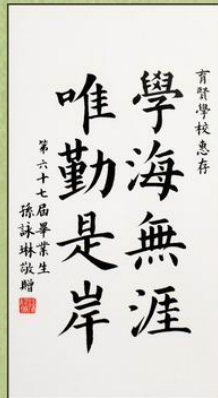 育賢學校惠存
學海無涯
唯勤是岸
第六十七屆畢業生
孫詠琳敬贈